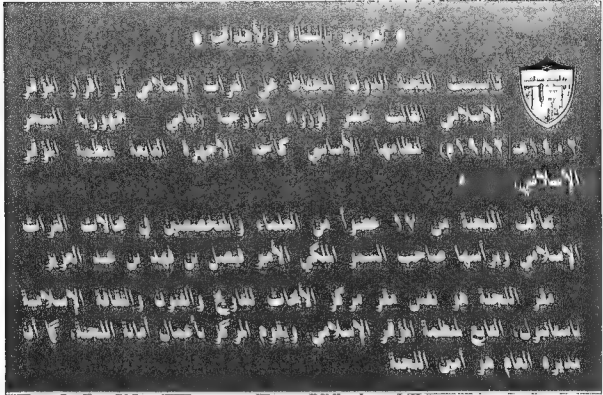 تعريف اللجنة والأهداف
تأسست اللجنة الدولية للحفاظ على التراث الإسلامي أثر قرار المؤتمر
الإسلامي الثالث عشر لوزراء الخارجية جمهورية النيجر
الإسلامي
تتألف اللجنة من ١٧ عضواً من العلماء والمتخصصين في مجالات التراث
الإسلامي ويرأسها صاحب السمو الملكي الأمير فيصل بن فهد بن عبد العزيز
مقر اللجنة هو نفس مقر مركز الأبحاث للتاريخ والفنون والثقافة الإسلامية
باستانبول، التابع لمنظمة المؤتمر الإسلامي ويقوم المركز بأعمال أمانة اللجنة، كما أن
مديره العام هو أمين اللجنة